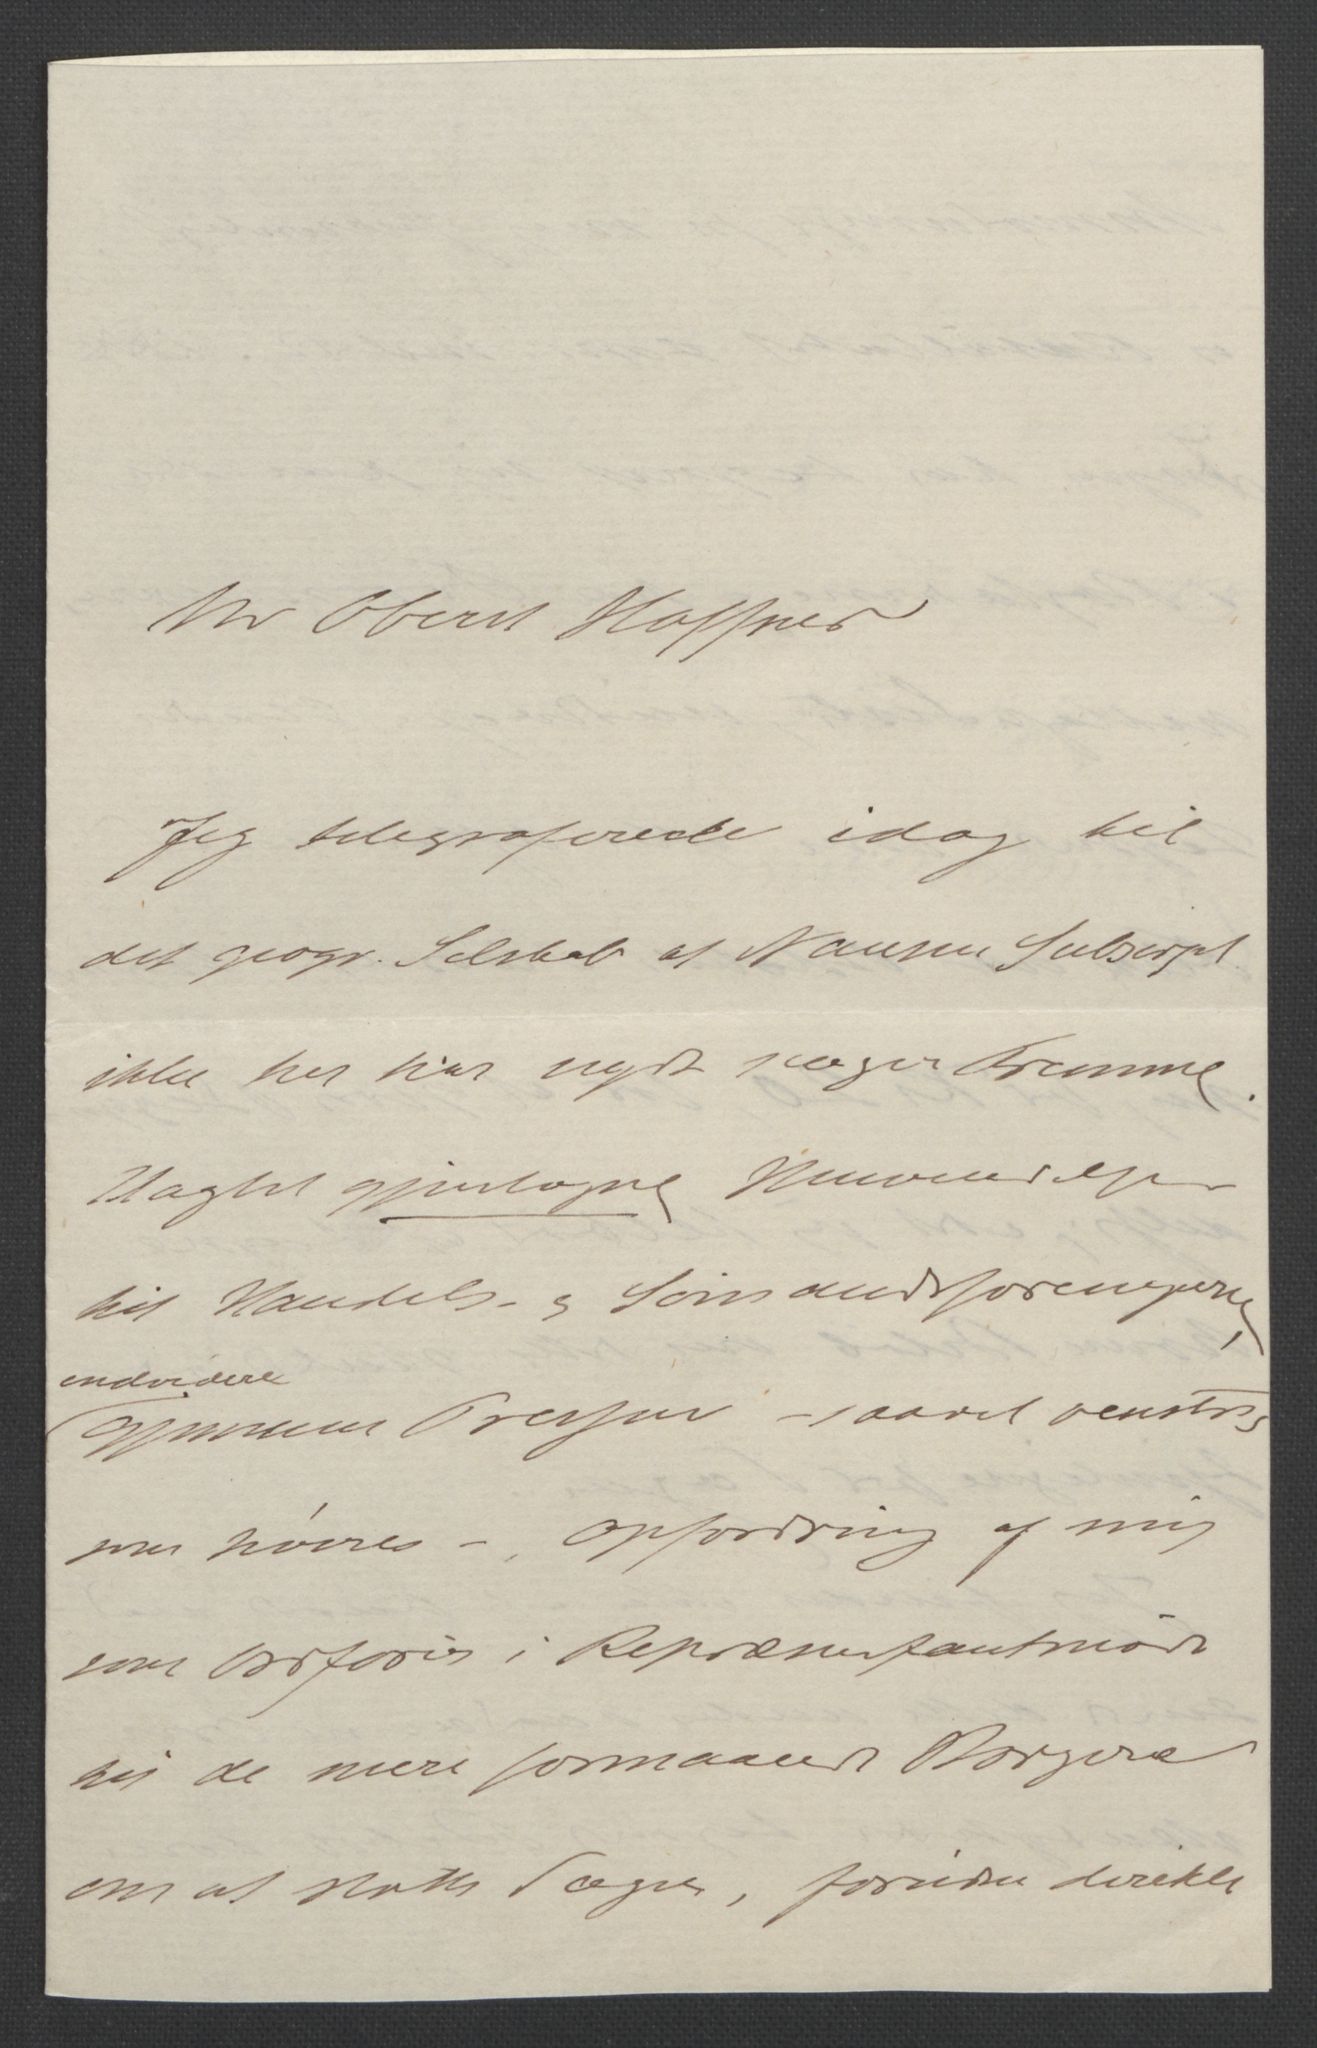 Hr Oberst Haffner
Jeg telegraferede idag til
det geogr. Selskab at Nansens Subscript.
ikke her har nydt nogen Fremme.
Uagtet gjentagne Henvendelser
til Handels- og Sømandsforeningerne,
endvidere
gjennem Pressen – saavel venstres
som høires –, Opfordring af mig
som Ordfører i Repræsentantmøde
til de mere formaaende Borgere
om at støtte Sagen, foruden direkte